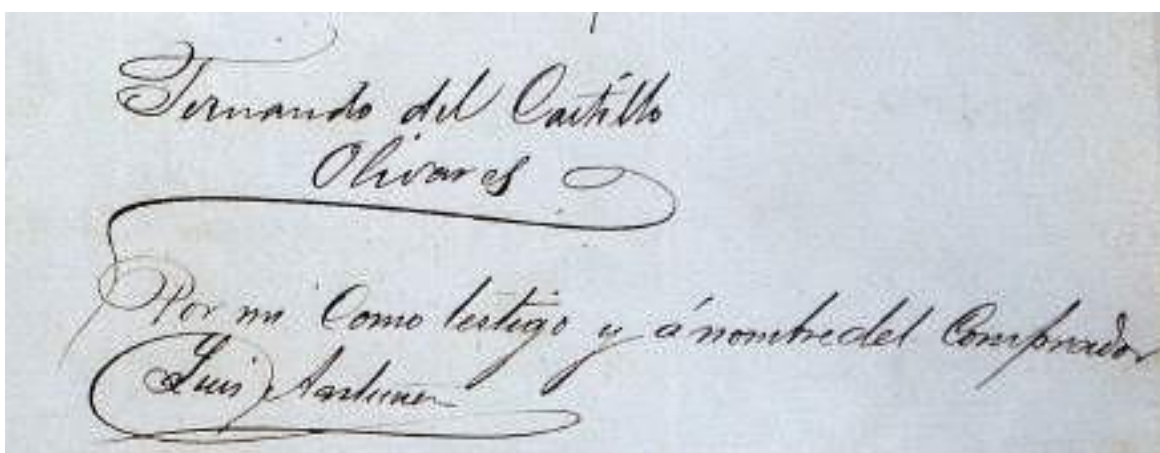 Fernando del Castillo
Olivares
Por mi Como testigo y á nombre del Comprador
Luis